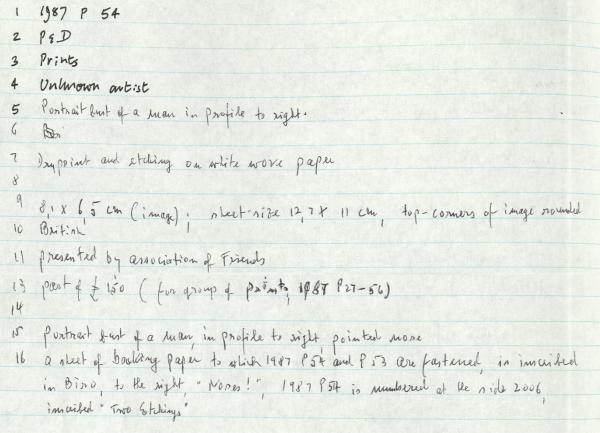 1 1987 P 54
2 P&D
3 Prints
4 Unknown artist
5 Portrait bust of a man in profile to right.
6
7 Drypoint and etching on white wove paper
8
9 8,1 x 6,5 cm (image); sheet-size 12,7 x 11 cm, top-corners of image rounded
10 British
11 presented by association of Friends
13 part of £ 150 (for group of prints, 1987 P27-56)
14
15 portrait bust of a man, in profile to right, pointed nose
16 a sheet of backing paper to which 1987 P54 and P53 are fastened, is inscribed
in Biro, to the right, "Noses!", 1987 P54 is numbered at the side 2006,
inscribed "Two Etchings"